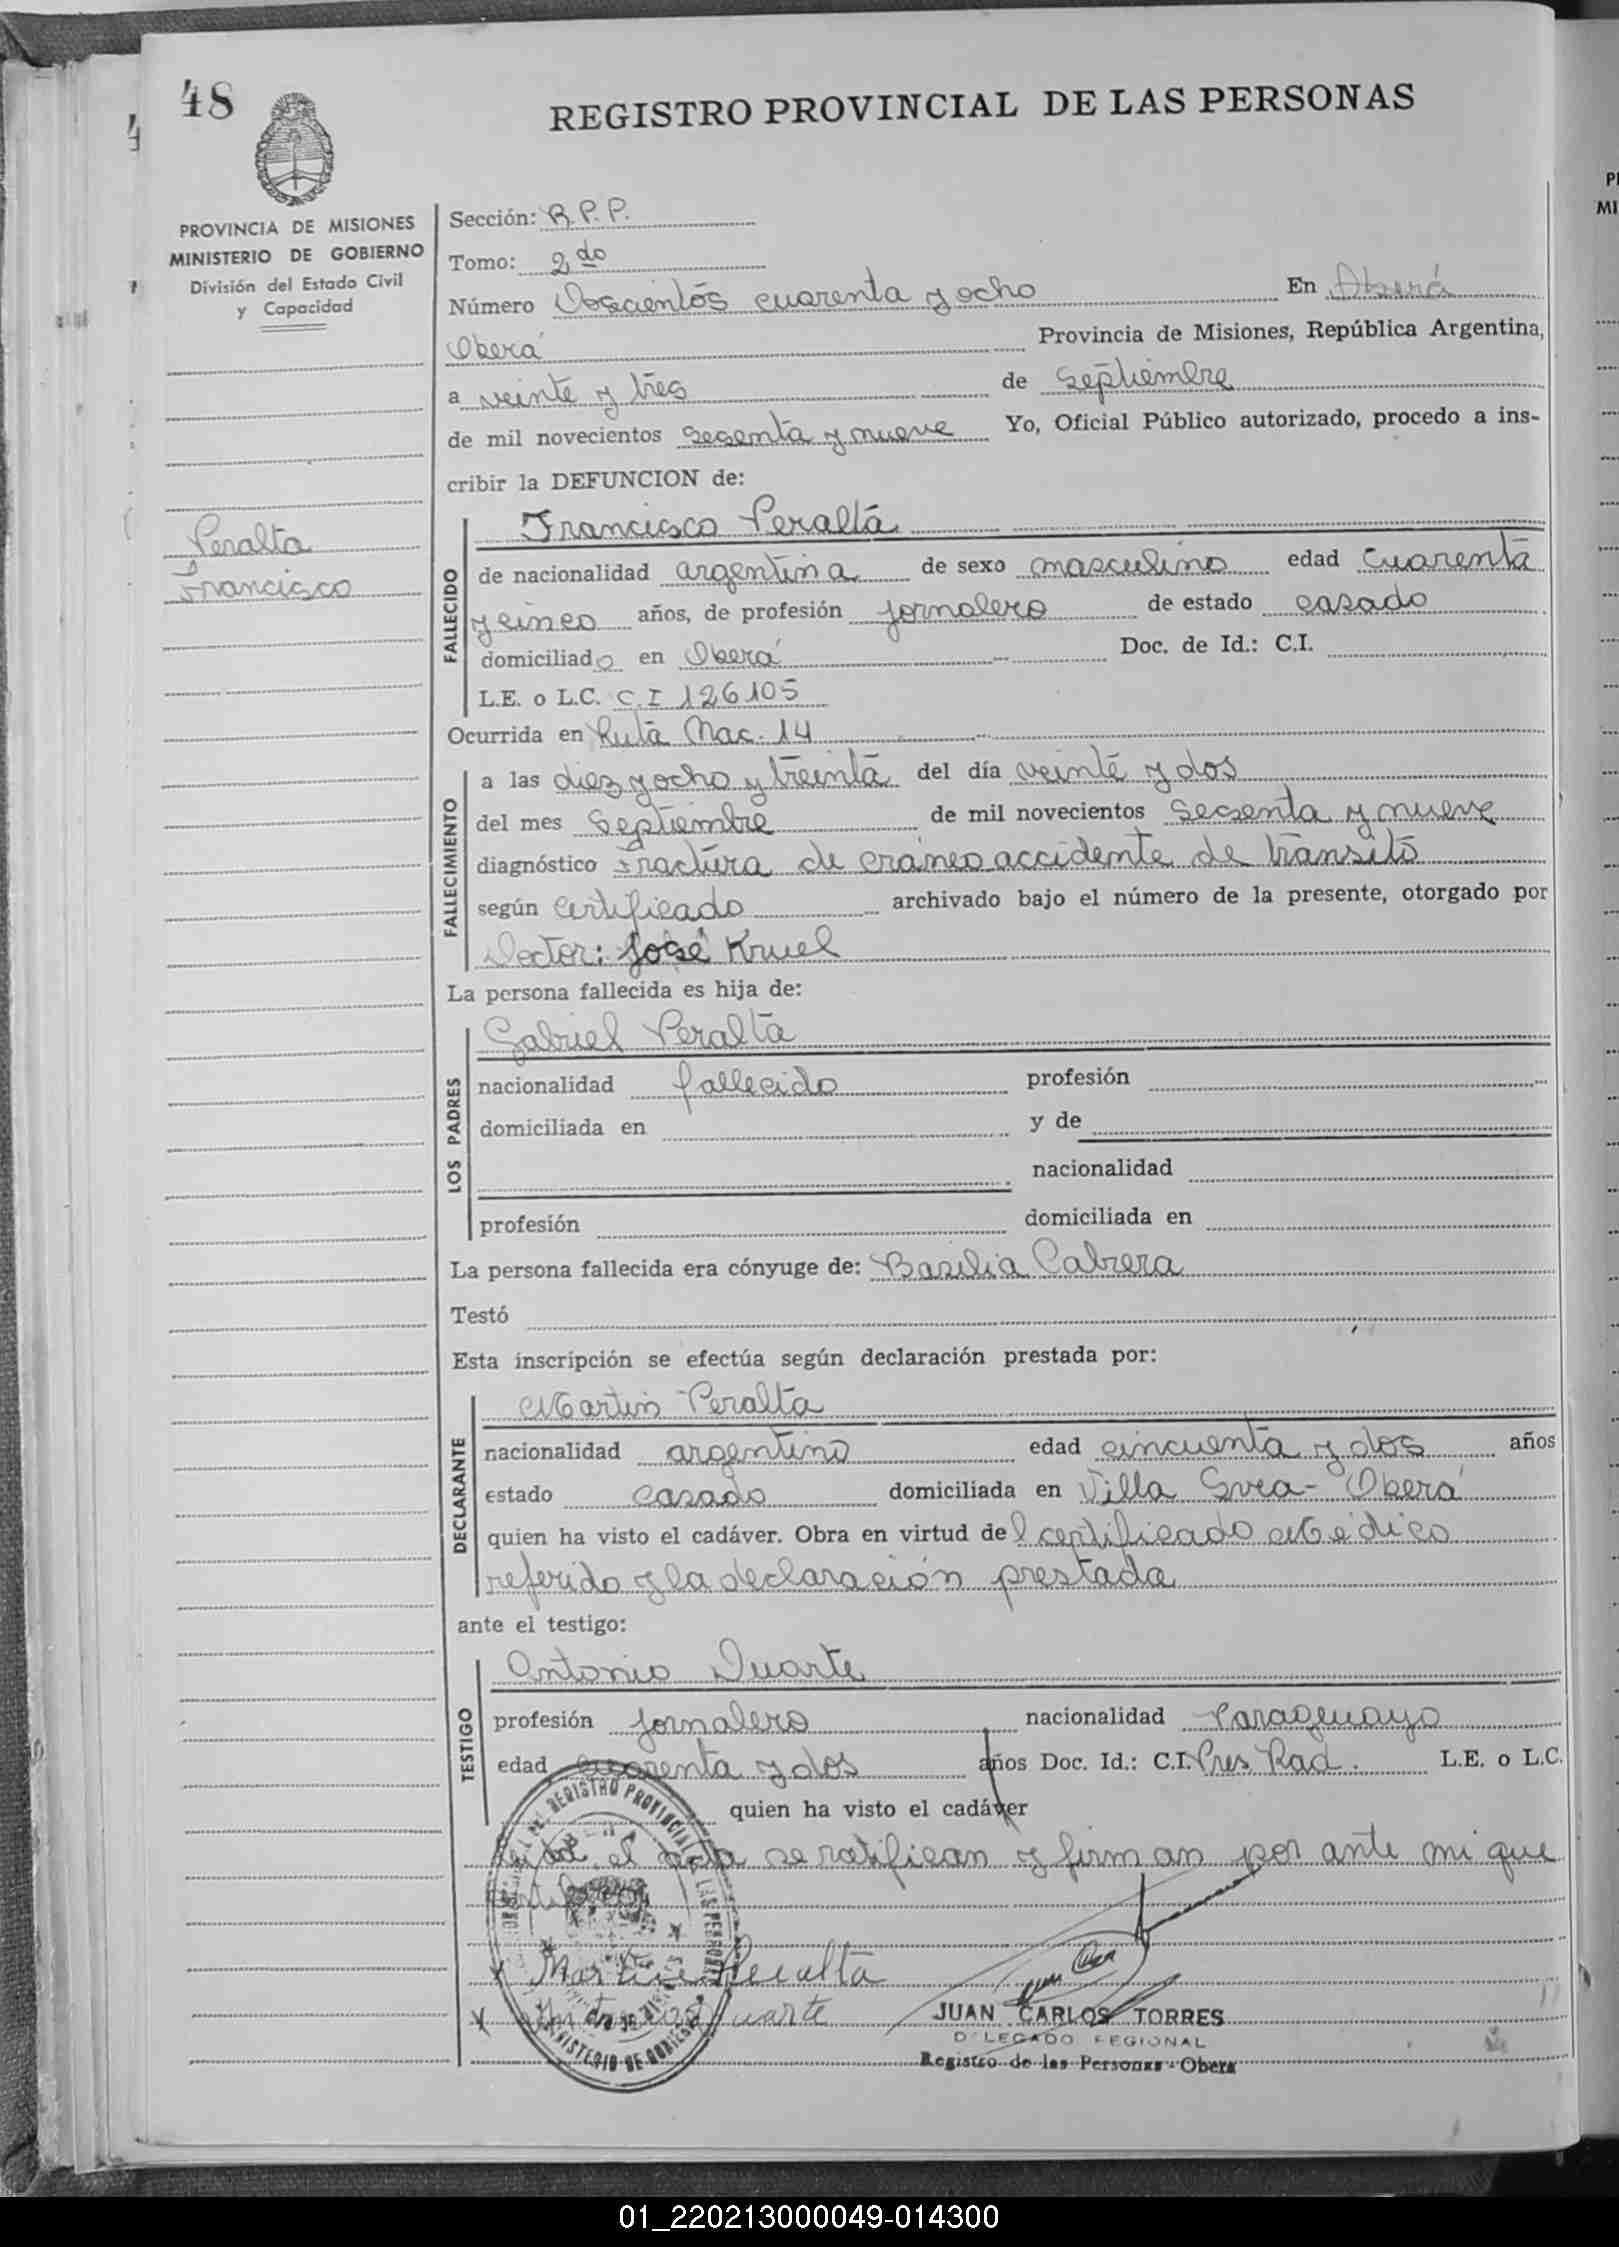 48
REGISTRO PROVINCIAL DE LAS PERSONAS
PROVINCIA DE MISIONES
MINISTERIO DE GOBIERNO
División del Estado Civil
y Capacidad
Peralta
Francisco
Sección: R.P.P.
Tomo: 2do
Número Doscientos cuarenta y ocho En Oberá
Oberá Provincia de Misiones, República Argentina,
a veinte y tres de septiembre
de mil novecientos sesenta y nueve Yo, Oficial Público autorizado, procedo a ins-
cribir la DEFUNCION de:
FALLECIDO
Francisco Peralta
de nacionalidad argentina de sexo masculino edad cuarenta
y cinco años, de profesión jornalero de estado casado
domiciliado en Oberá Doc. de Id.: C.I.
L.E. o L.C. C.I 126105
Ocurrida en Ruta Nac. 14
FALLECIMIENTO
a las diez y ocho y treinta del día veinte y dos
del mes Septiembre de mil novecientos secsenta y nueve
diagnóstico Fractura de cráneo accidente de transito
según Certificado archivado bajo el número de la presente, otorgado por
Doctor: José Kruel
La persona fallecida es hija de:
LOS PADRES
Gabriel Peralta
nacionalidad fallecido profesión
domiciliada en y de
nacionalidad
profesión domiciliada en
La persona fallecida era cónyuge de: Basilia Cabrera
Testó
Esta inscripción se efectúa según declaración prestada por:
DECLARANTE
Martin Peralta
nacionalidad argentino edad cincuenta y dos años
estado casado domiciliada en Villa Svea - Oberá
quien ha visto el cadáver. Obra en virtud del certificado Médico
referido y la declaración prestada
ante el testigo:
TESTIGO
Antonio Duarte
profesión jornalero nacionalidad Paraguayo
edad cuarenta y dos años Doc. Id.: C.I. Pres Rad. L.E. o L.C.
quien ha visto el cadáver
el acta se ratifican y firman por ante mi que
Martin Peralta
Duarte
JUAN CARLOS TORRES
DELEGADO REGIONAL
Registro de las Personas - Obera
01_220213000049-014300